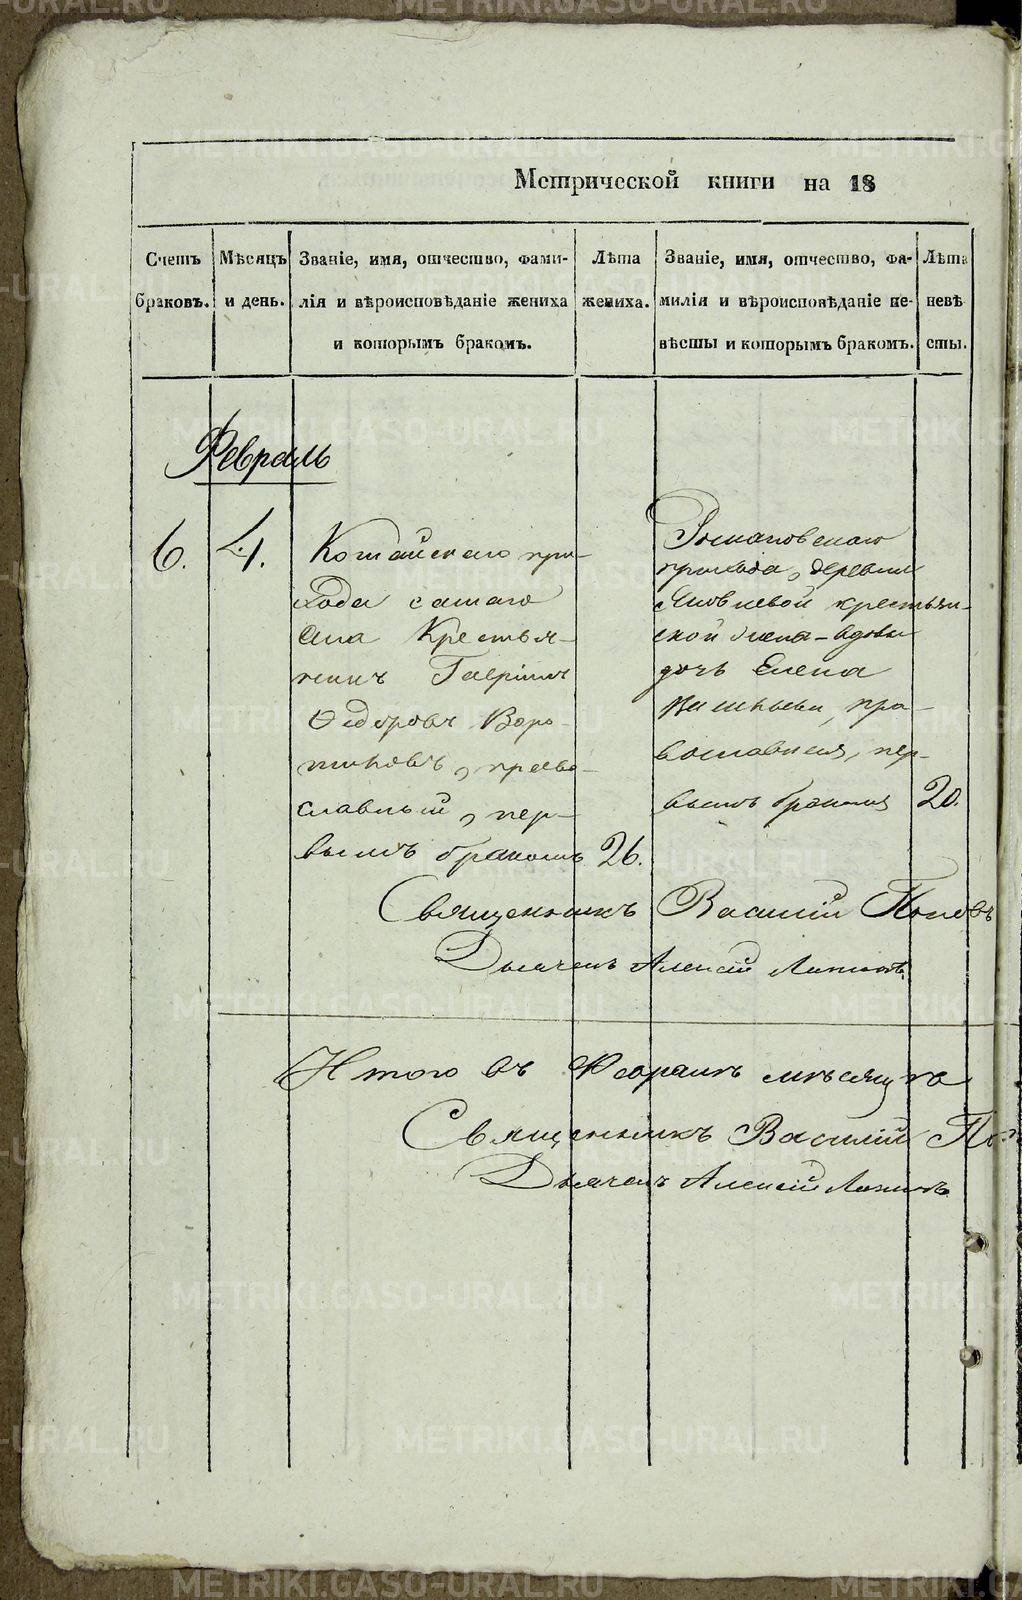 Метрической книги на 18
Счетъ браковъ.
Мѣсяцъ и день.
Званіе, имя, отчество, фами-
лія и вѣроисповѣданіе жениха
и которымъ бракомъ.
Лѣта жениха.
Званіе, имя, отчество, фа-
милія и вѣроисповѣданіе не-
вѣсты и которымъ бракомъ.
Лѣта невѣ
сты.
Февраль
6.
4.
прихода самаго
села Крестья-
нинъ Гавріилъ
Ѳедоровъ Воро-
,  правo-
славный, пер-
вымъ бракомъ
26.
Романовскаго
прихода, деревни
Яковлевой крестьян-
ской
дочь Елена
Васильева, пра-
вославная, пер-
вымъ бракомъ
20.
Священникъ Василій Поповъ
Дьячекъ Алексій
Итого въ Февралѣ мѣсяцѣ
Священникъ Василій По
Дьячекъ Алексій
METRIKI.GASO-URAL.RU